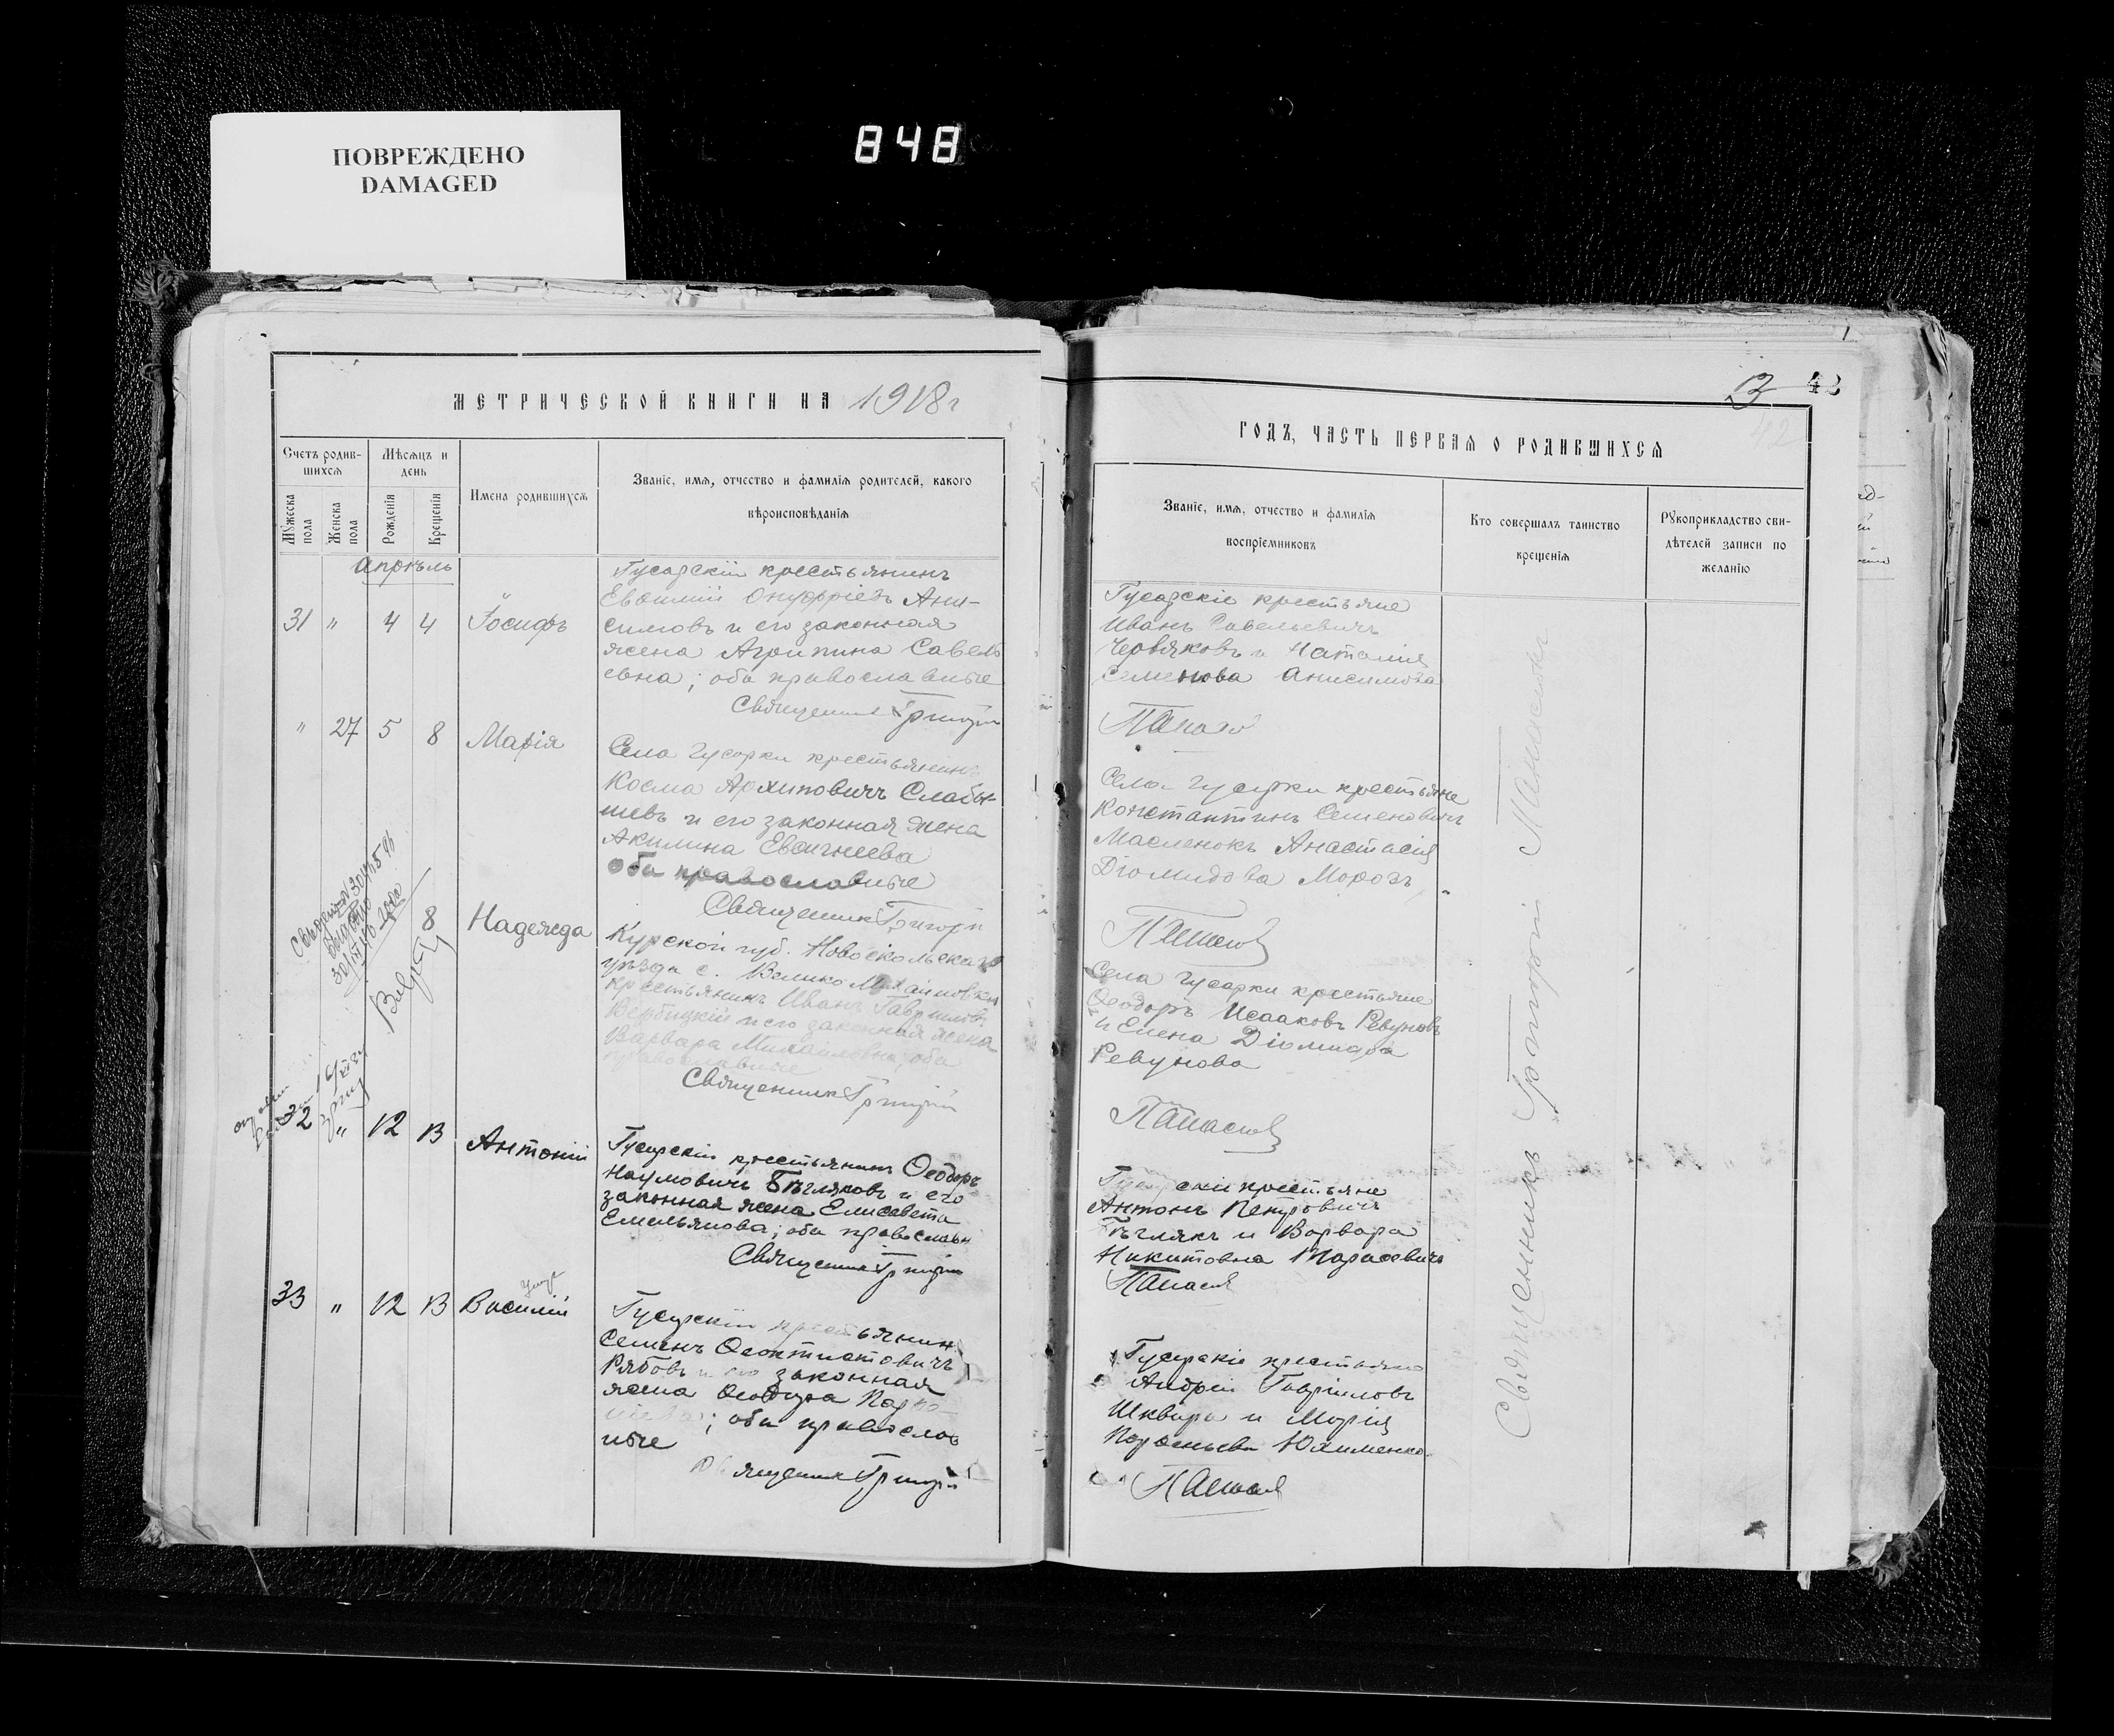 ПОВРЕЖДЕНО
DAMAGED
848
МЕТРИЧЕСКОЙ КНИГИ НА 1918 г
Счетъ родив-
шихся
Мѣсяцъ и
день
Имена родившихся
Званіе, имя, отчество и фамилія родителей, какого
вѣроисповѣданія
Мужеска
пола
Женска
пола
Рожденія
Крещенія
Апрѣль
31 " 4 4 Іосифъ
Гусарскій крестьянинъ
Евфимій Онуфріевъ Ани-
симовъ и его законная
жена Агрипина Савель
евна; оба православные
Священник Григорій
" 27 5 8 Марія
Села Гусарки крестьянинъ
Косма Архиповичъ Слабы-
шевъ и его законная жена
Акилина Евсигнеева
оба православные
Священник Григорій
8 Надежда
Курской губ. Новооскольскаго
уѣзда с. Велико Михайловки
крестьянинъ Иванъ Гаврилов.
Вербицкій и его законная жена
Варвара Михайловна; оба
православные
Священник Григорій
32 " 12 13 Антоній
Гусарскій крестьянинъ Ѳеодоръ
Наумовичъ Бѣгляковъ и его
законная жена Елисавета
Емельянова; оба православн
Священник Григорій
33 " 12 13 Василій
Гусарскій крестьянин
Семенъ Ѳеоктистовичъ
Рябовъ и его законная
жена Ѳеодора
оба православ
ные
Священник Григорій
13 42
42
ГОДЪ, ЧАСТЬ ПЕРВАЯ О РОДИВШИХСЯ
Званіе, имя, отчество и фамилія
воспріемниковъ
Кто совершалъ таинство
крещенія
Рукоприкладство сви-
дѣтелей записи по
желанію
Гусарскіе крестьяне
Иванъ Савельевичъ
Червяковъ и Наталія
Семенова Анисимова
Села Гусарки крестьяне
Константинъ Семеновичъ
Масленокъ Анастасія
Діомидова Морозъ
Села Гусарки крестьяне
Ѳеодоръ Исааковъ Ревуновъ
и Елена Діомидова
Ревунова
Гусарскіе крестьяне
Антонъ Петровичъ
Бѣглякъ и Варвара
Никитовна Тарасевичъ
Гусарскіе крестьяне
Андрей Гавріиловъ
Шквира и Марія
Парфеньева Юхименко
Священникъ Григорій